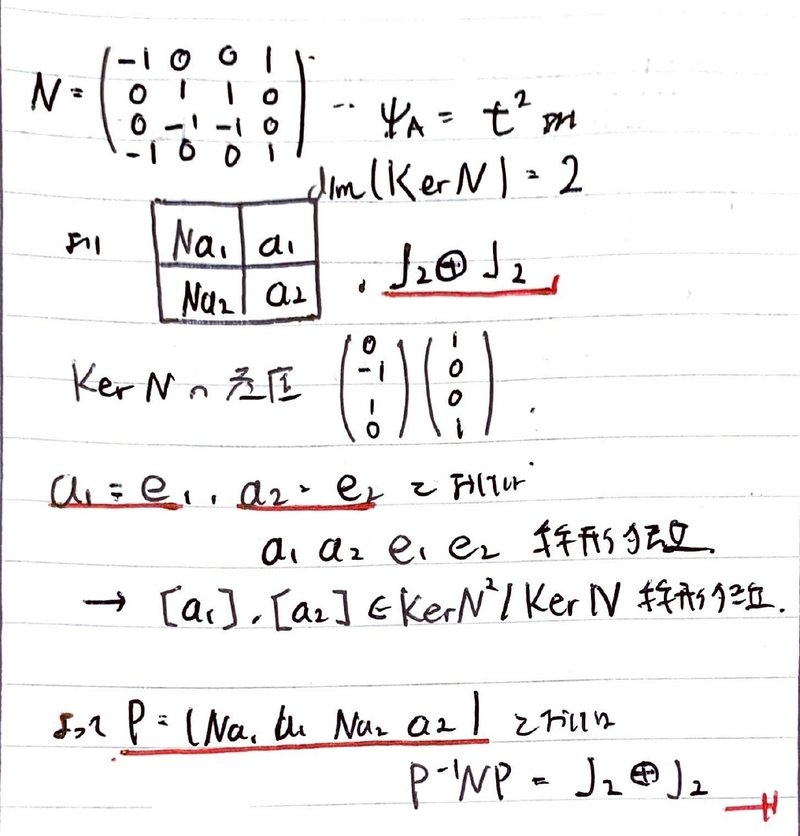 N = (-1 0 0 1
0 1 1 0
0 -1 -1 0
-1 0 0 1) … ψA = t² より
dim(Ker N) = 2
より Na₁ a₁
Na₂ a₂ . J₂⊕J₂
Ker N の基底 (0 -1 1 0) (1 0 0 1) .
a₁ = e₁, a₂ = e₂ とすれば
a₁ a₂ e₁ e₂ 線形独立.
→ [a₁], [a₂] ∈ Ker N² / Ker N 線形独立.
よって P = (Na₁ a₁ Na₂ a₂) とすれば
P⁻¹NP = J₂⊕J₂